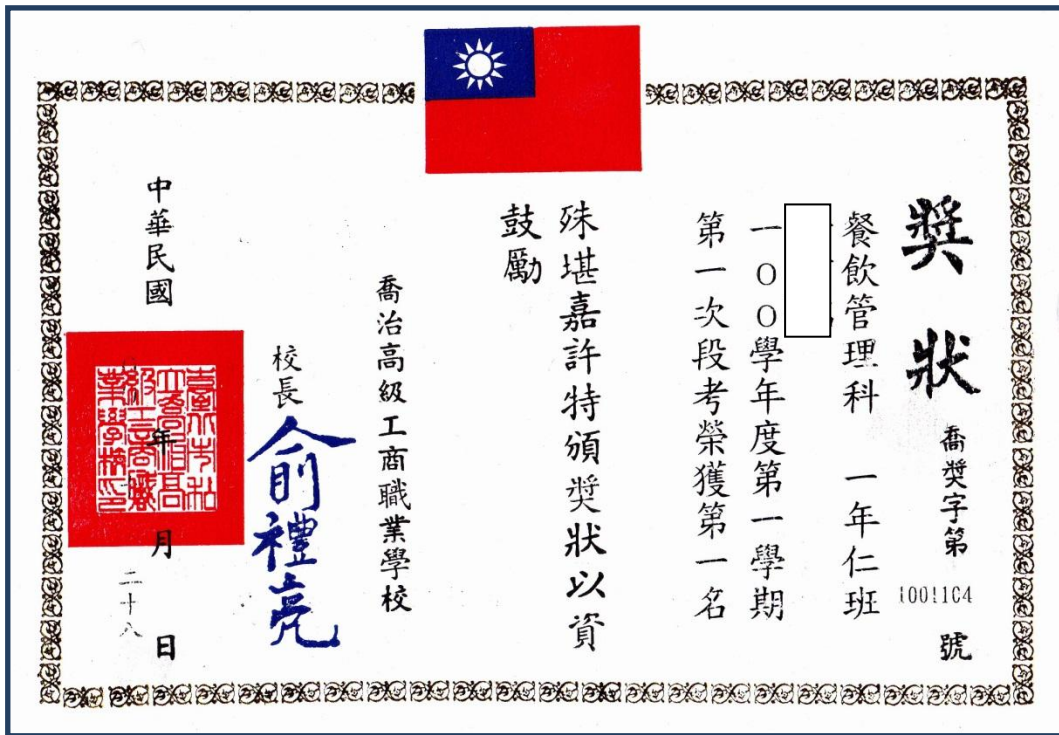 獎狀
喬獎字第 1001104 號
餐飲管理科 一年仁班
一００學年度第一學期
第一次段考榮獲第一名
殊堪嘉許特頒獎狀以資
鼓勵
喬治高級工商職業學校
校長 俞禮亮
中華民國 年 月 二十八 日